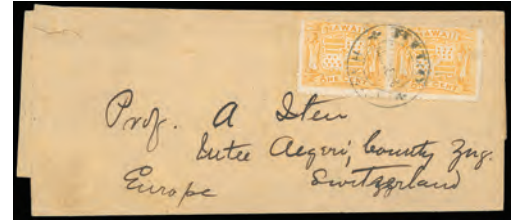 HAWAII HAWAII
ONE CENT ONE CENT
Prof. A Iten
Aegeri, County Zug.
Europe Switzerland